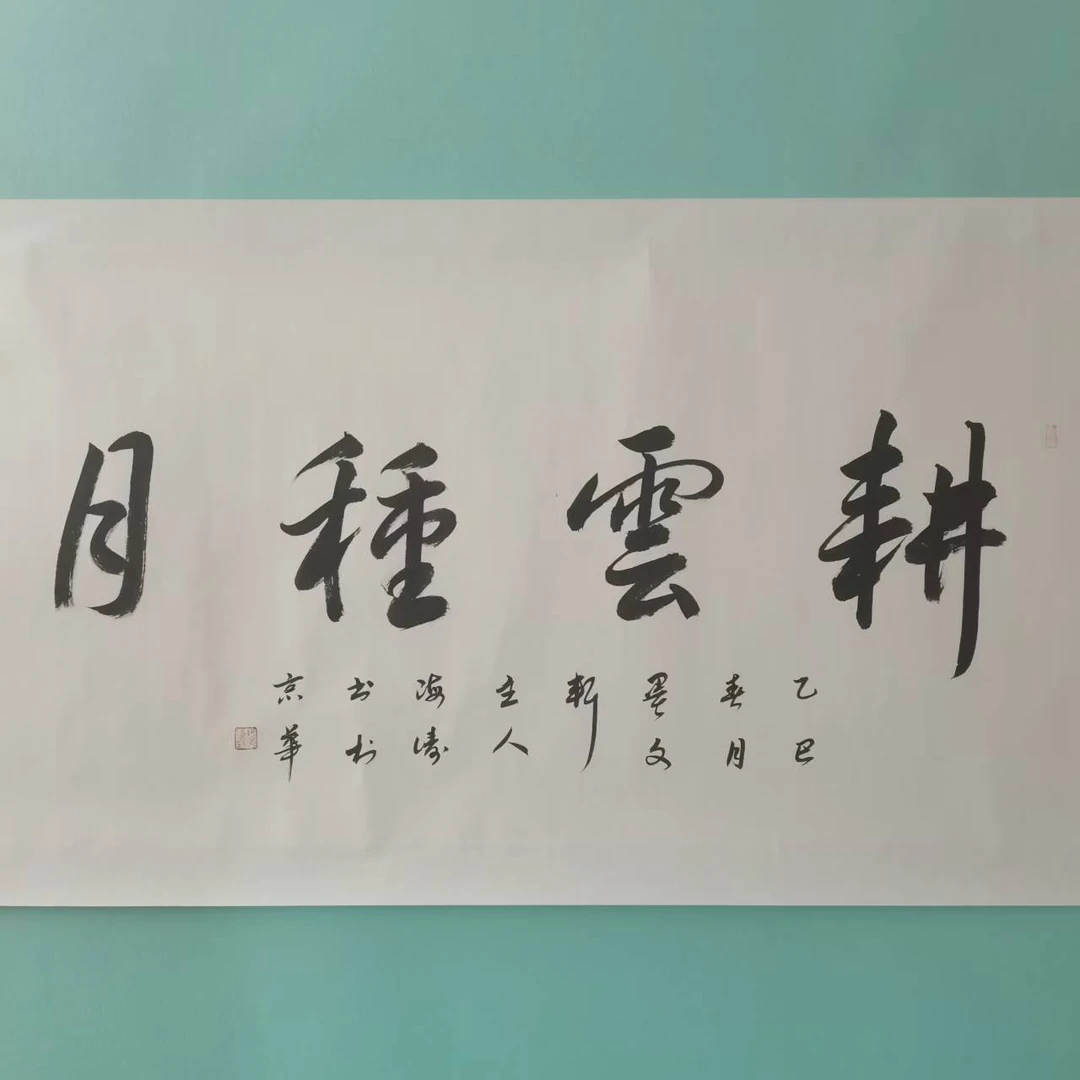 耕雲種月
乙巳
春月
墨文
軒
主人
海濤
书於
京華